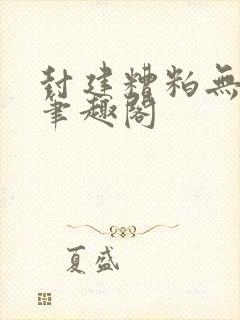 封建糟粕無
筆趣閣
夏盛